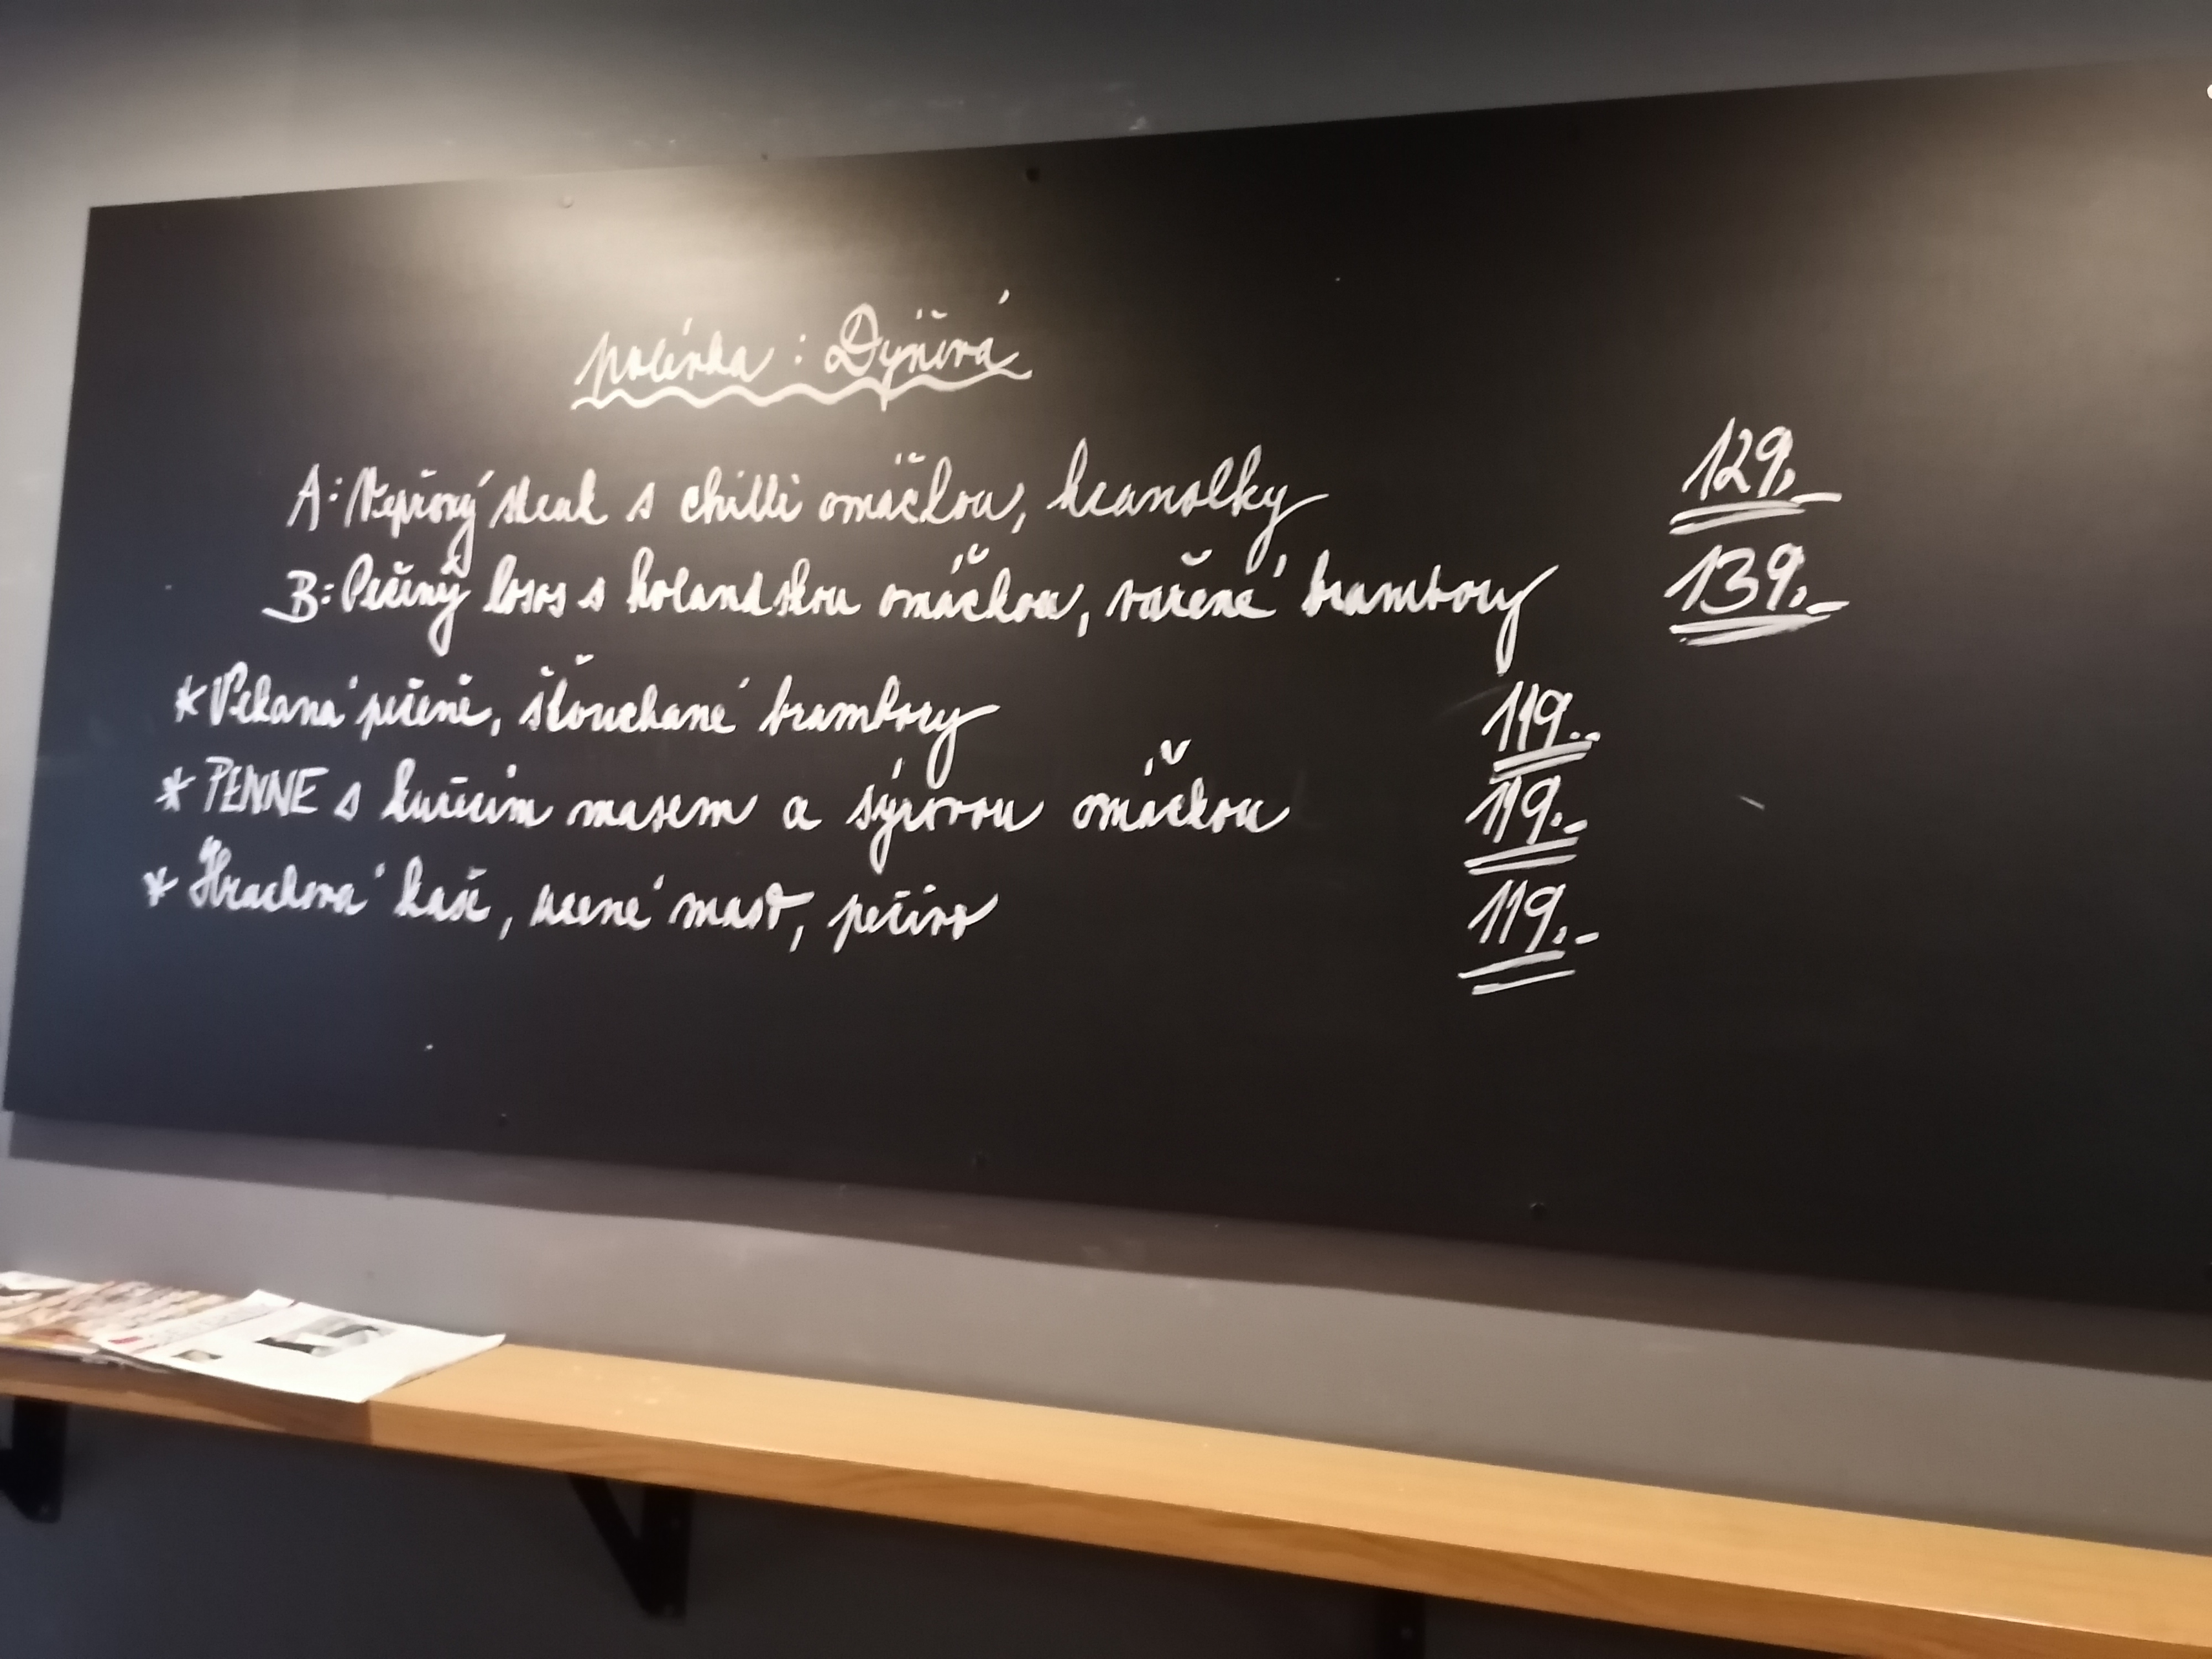 polévka : Dýňová
A: Vepřový steak s chilli omáčkou, hranolky 129,-
B: Pečený losos s holandskou omáčkou, vařené brambory 139,-
* Pekaná pečeně, šťouchané brambory 119,-
* PENNE s kuřecím masem a sýrovou omáčkou 119,-
* Hrachová kaše, uzené maso, pečivo 119,-